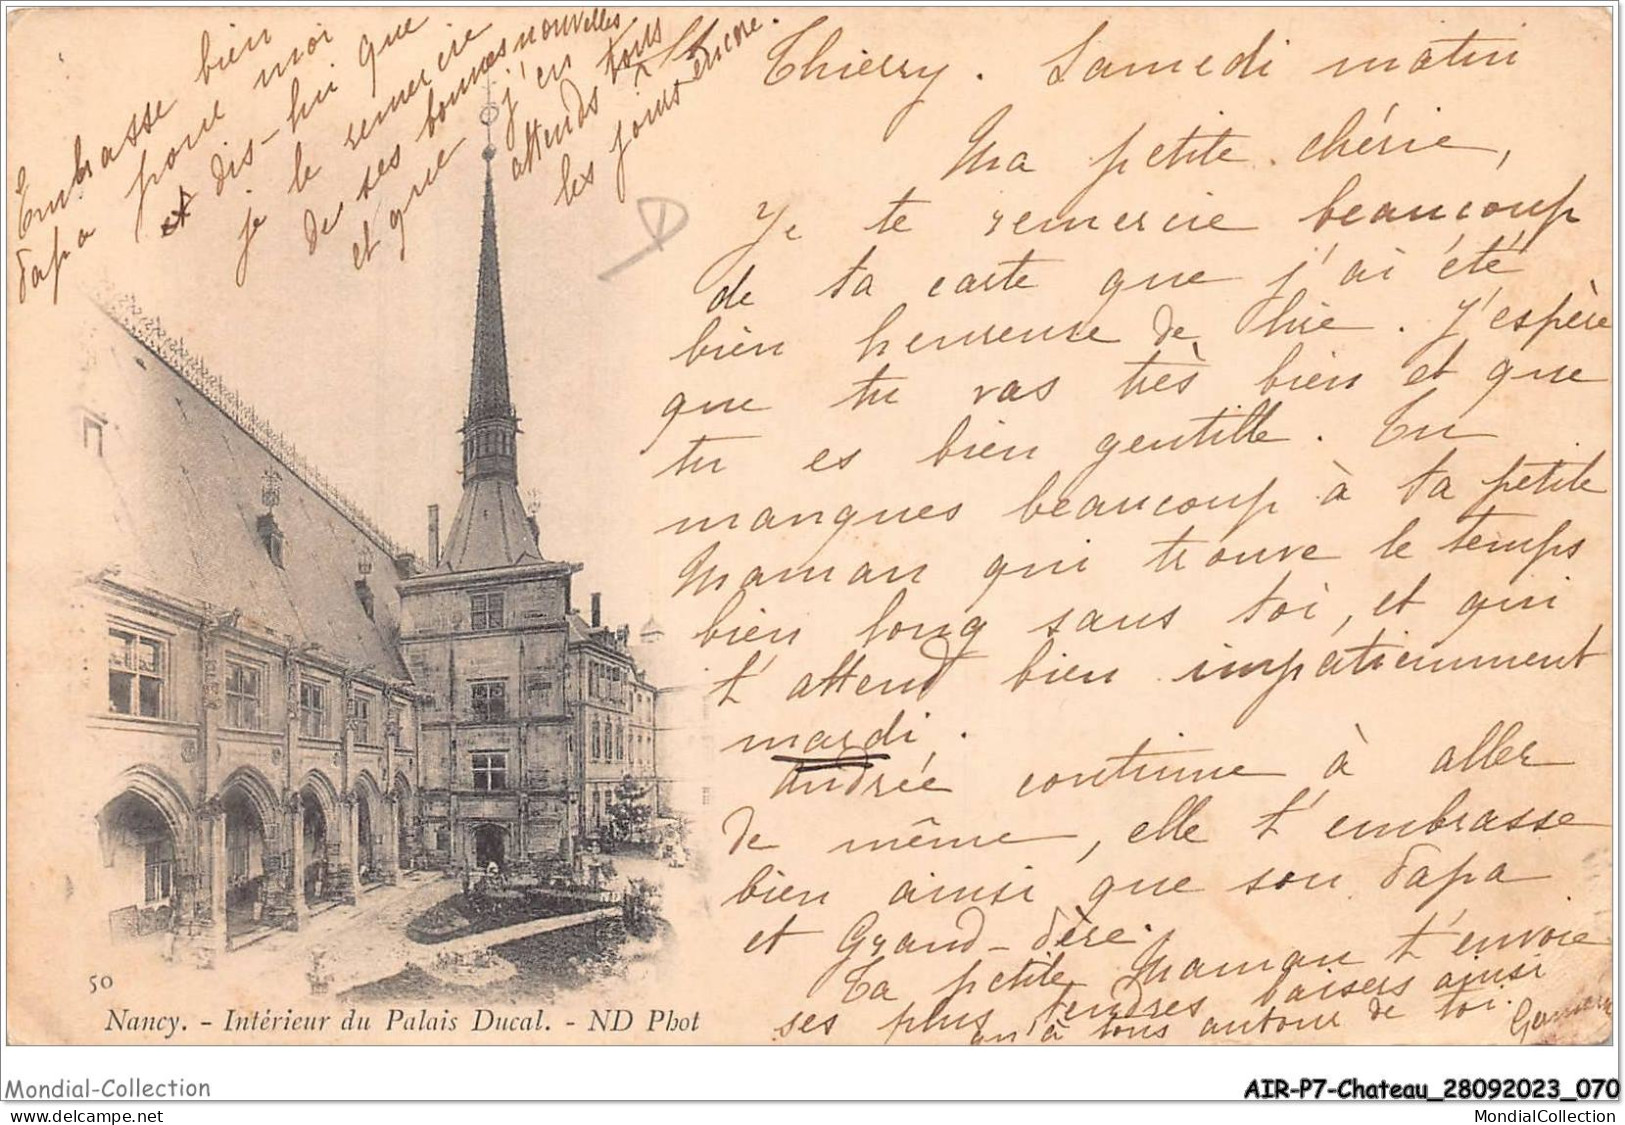 Thierry. Samedi matin
Ma petite chérie,
Je te remercie beaucoup
de ta carte que j'ai été
bien heureuse de lire. J'espère
que tu vas très bien et que
tu es bien gentille. Tu
manques beaucoup à ta petite
Maman qui trouve le temps
bien long sans toi, et qui
t'attend bien impatiemment
mardi.
Andrée continue à aller
de même, elle t'embrasse
bien ainsi que son Papa
et Grand-Père.
Ta petite Maman t'envoie
ses plus tendres baisers ainsi
qu'à tous autour de toi.
Embrasse bien
Papa pour moi
et dis-lui que
je le remercie
de ses bonnes nouvelles
et que j'en
attends tous
les jours encore.
50
Nancy. - Intérieur du Palais Ducal. - ND Phot
Mondial-Collection
AIR-P7-Chateau_28092023_070
www.delcampe.net
MondialCollection